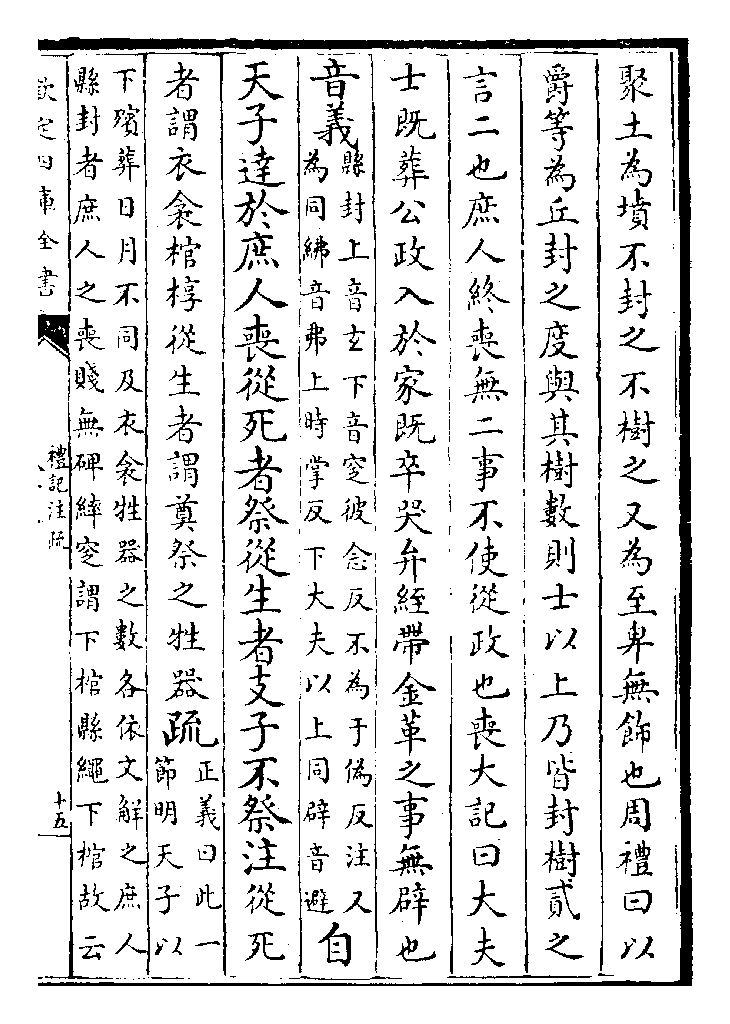 聚土為墳不封之不樹之又為至卑無飾也周禮曰以
爵等為丘封之度與其樹數則士以上乃皆封樹貳之
言二也庶人終喪無二事不使從政也喪大記曰大夫
士既葬公政入於家既卒哭弁絰帶金革之事無辟也
音義
縣封上音玄下音窆彼念反不為于偽反注又
為同紼音弗上時掌反下大夫以上同辟音避
自
天子達於庶人喪從死者祭從生者支子不祭注從死
者謂衣衾棺椁從生者謂奠祭之牲器疏
正義曰此一
節明天子以
下殯葬日月不同及衣衾牲器之數各依文解之庶人
縣封者庶人之喪賤無碑繂窆謂下棺縣繩下棺故云
欽定四庫全書
禮記注疏
十五